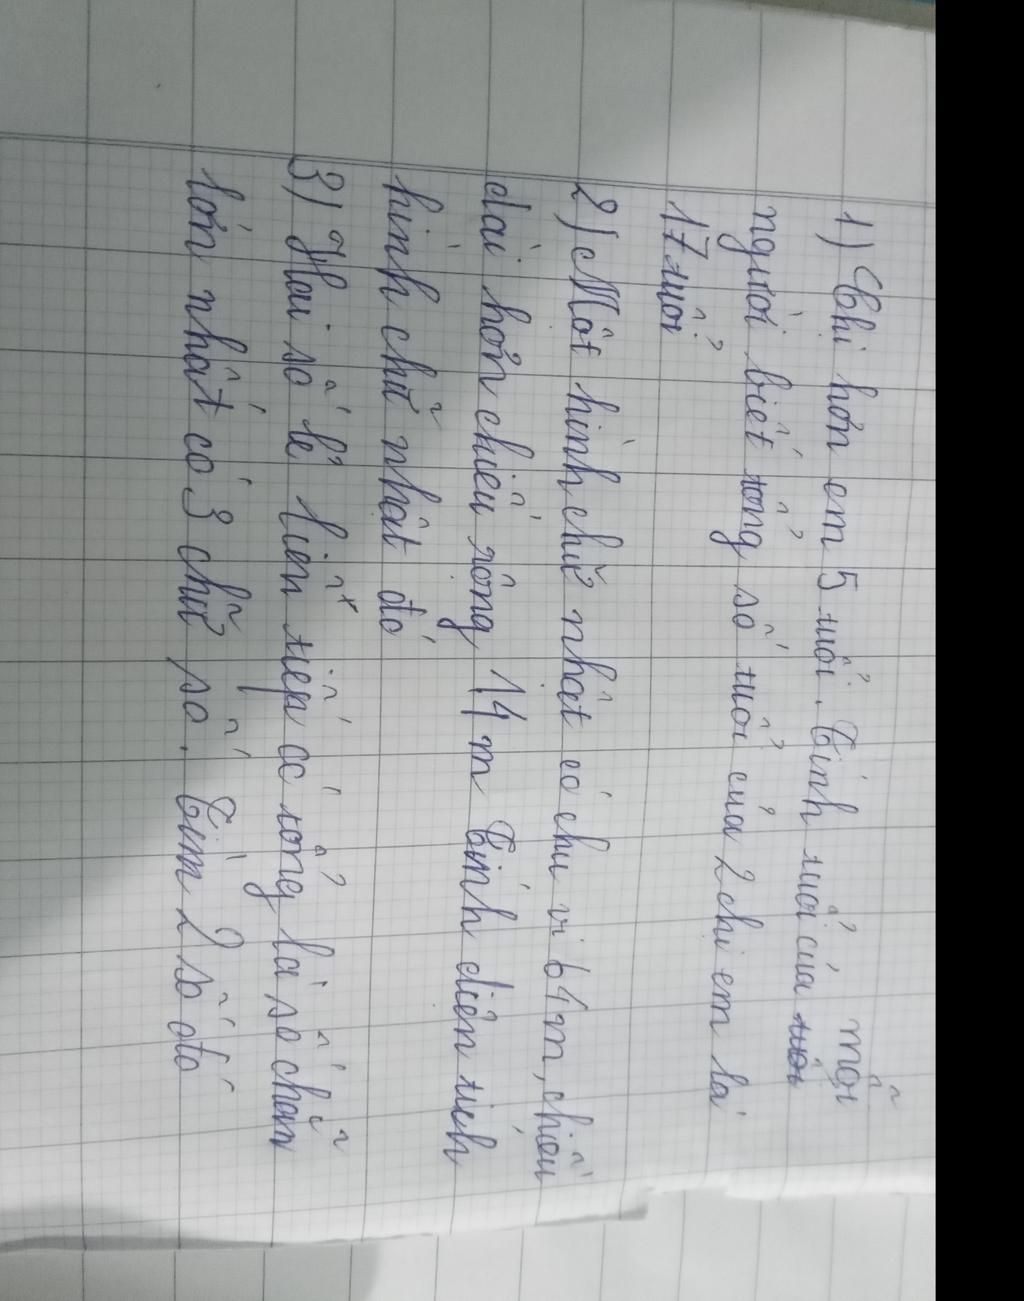 1) Chị hơn em 5 tuổi. Tính tuổi của mỗi
người biết tổng số tuổi của 2 chị em là
17 tuổi
2) Một hình chữ nhật có chu vi 64m, chiều
dài hơn chiều rộng 14 m Tính diện tích
hình chữ nhật đó
3) Hai số lẻ liên tiếp có tổng là số chẵn
lớn nhất có 3 chữ số. Tìm 2 số đó